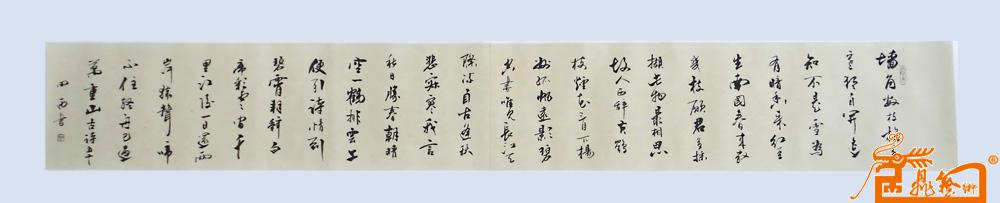 墙角数枝梅
凌寒自开遥
知不是雪为
有暗香来红豆
生南国春来发
几枝愿君多採
撷此物最相思
故人西辞黄鹤
楼烟花三月下扬
州孤帆远影碧
空尽唯见长江天
际流自古逢秋
悲寂寞我言
秋日胜春朝晴
空一鹤排云上
便引诗情到
碧霄朝辞白
帝彩云间千
里江陵一日还两
岸猿声啼
不住轻舟已过
万重山古诗五首
鼎艺术
®